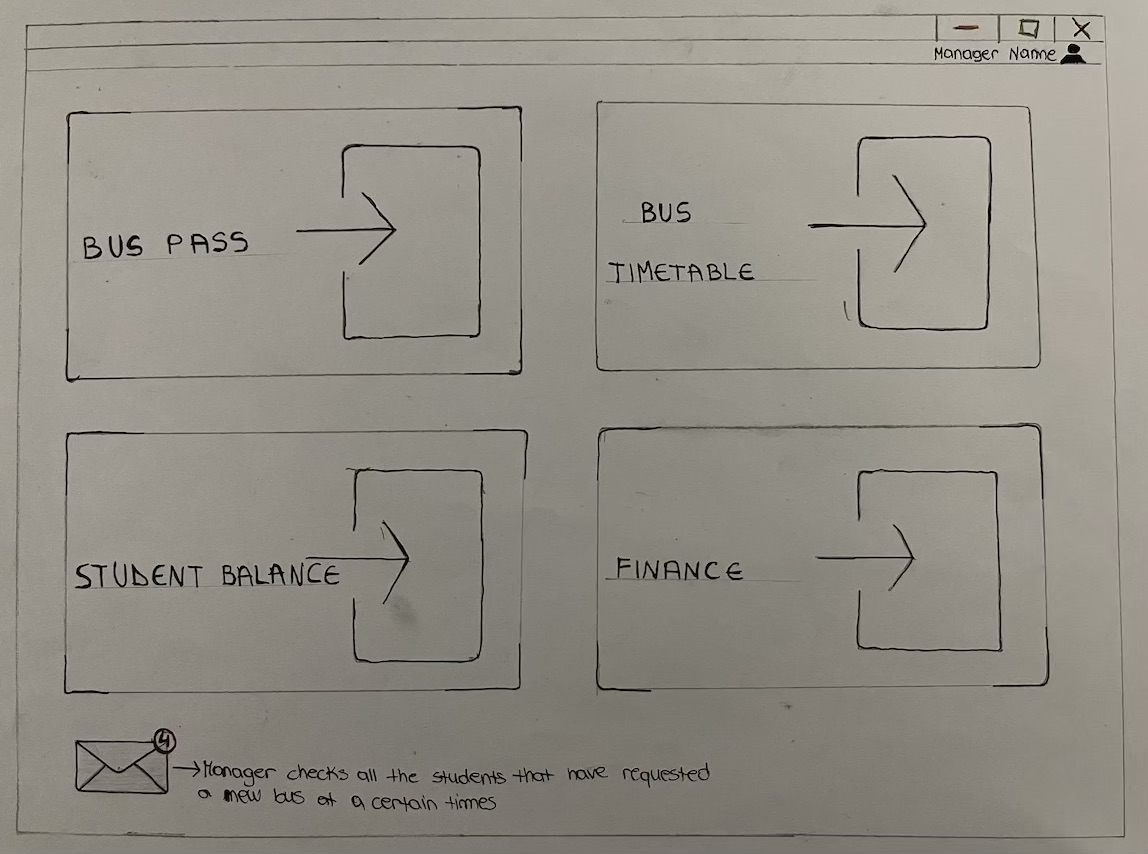 Manager Name
BUS PASS
BUS
TIMETABLE
STUDENT BALANCE
FINANCE
4
Manager checks all the students that have requested
a new bus at a certain times